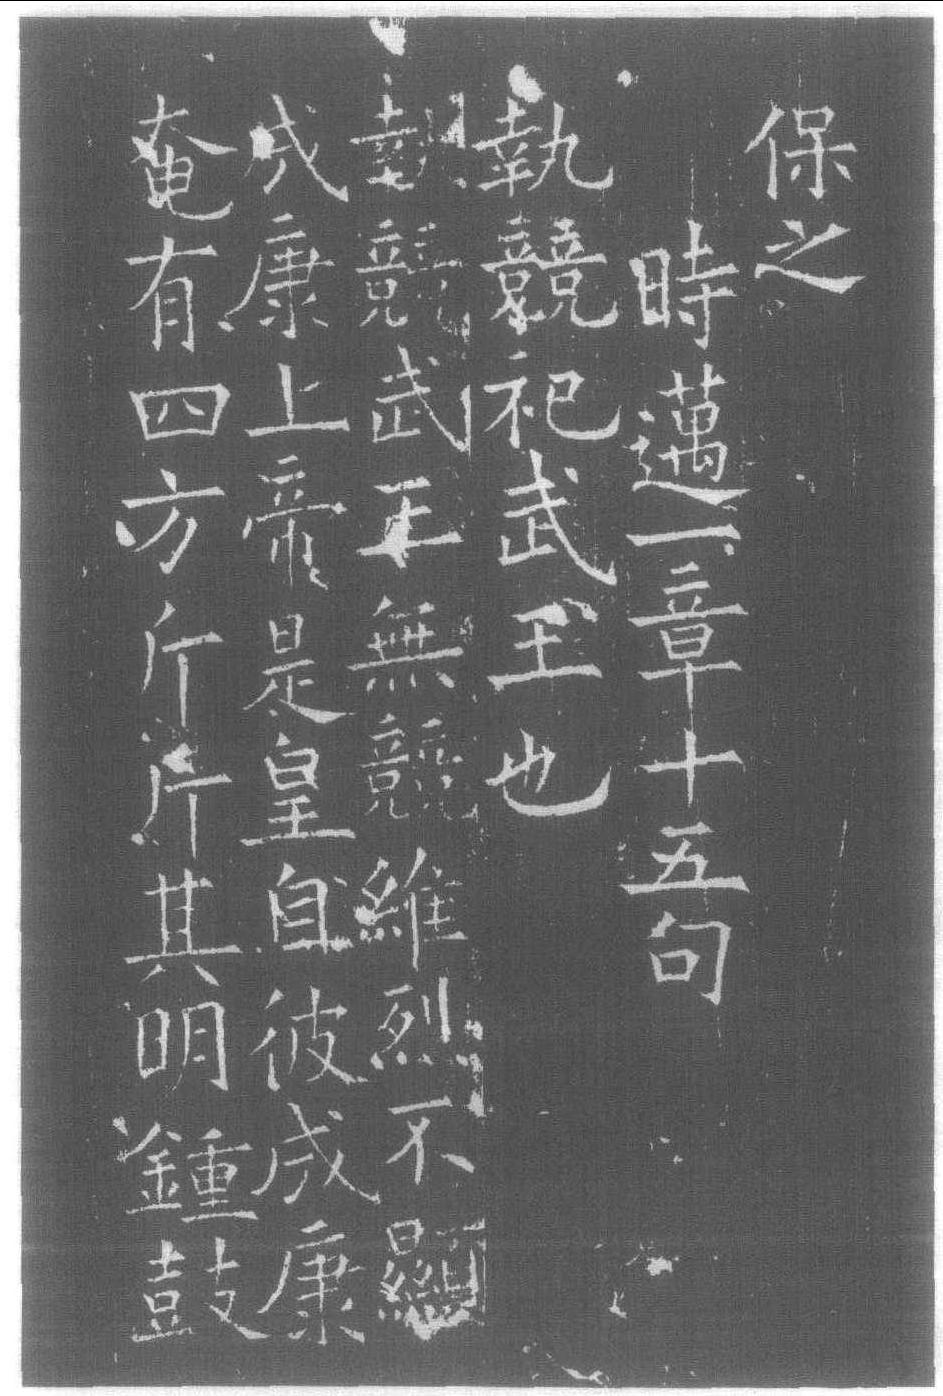 保之
時邁一章十五句
執競祀武王也
執競武王無競維烈不顯
成康上帝是皇自彼成康
奄有四方斤斤其明鍾鼓